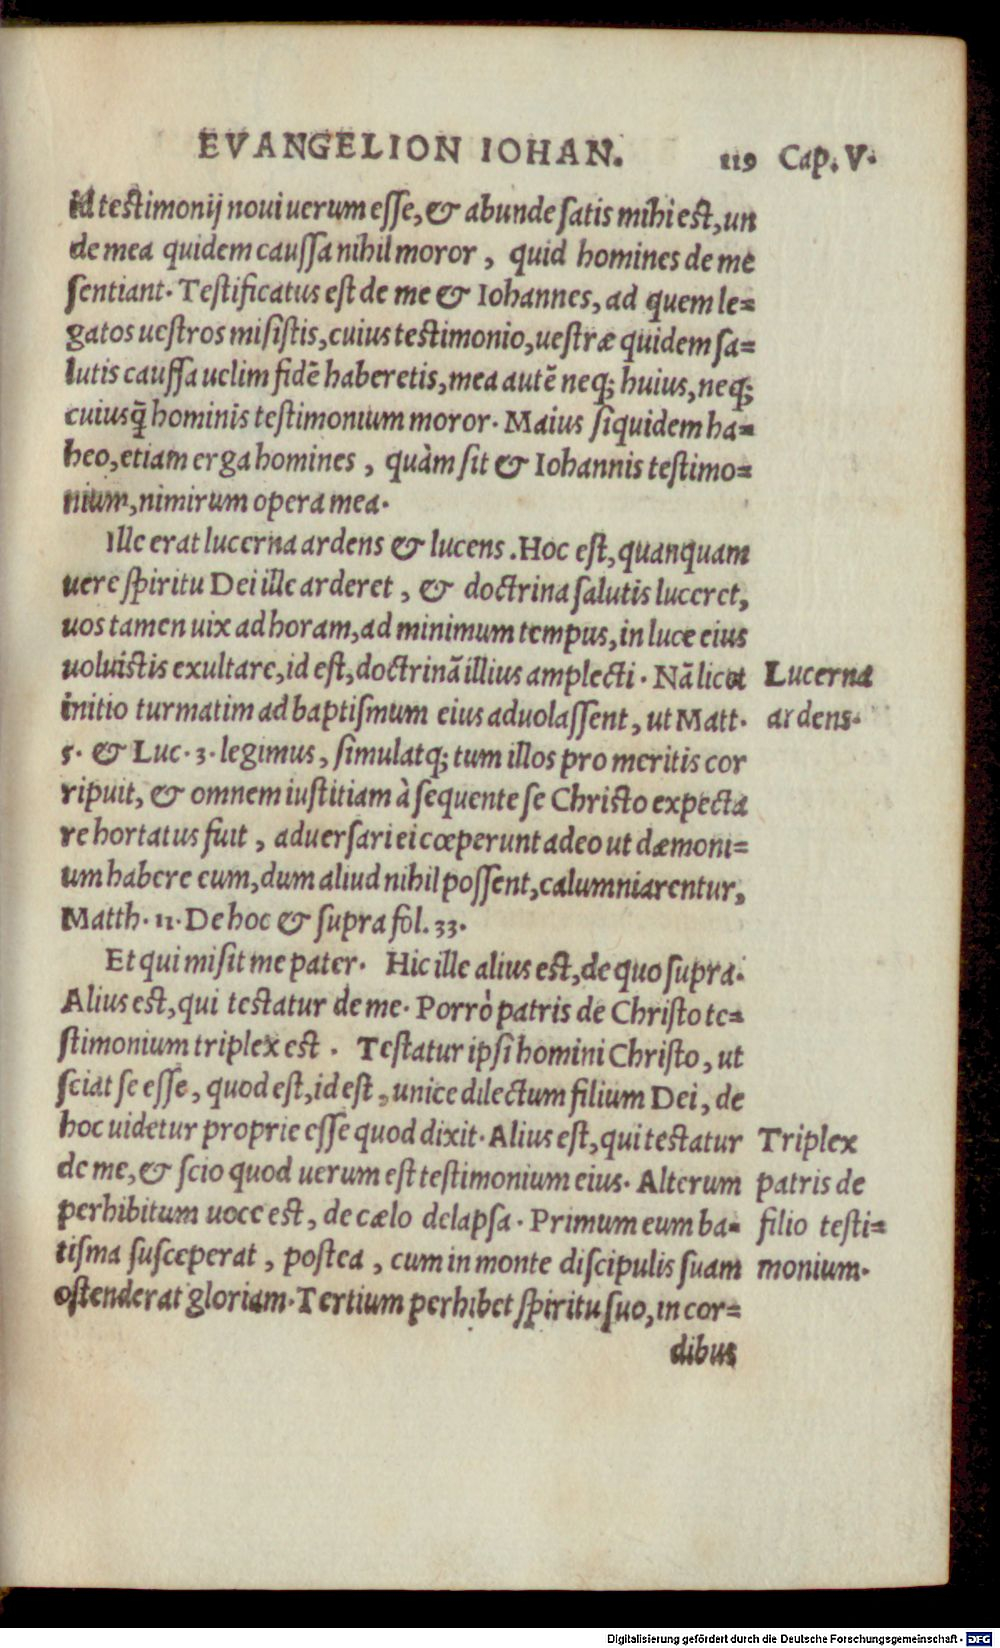 EVANGELION IOHAN. 119 Cap. V.
id testimonij noui uerum esse, & abunde satis mihi est, un
de mea quidem caussa nihil moror, quid homines de me
sentiant. Testificatus est de me & Iohannes, ad quem le=
gatos uestros misistis, cuius testimonio, uestræ quidem sa=
lutis caussa uelim fidē haberetis, mea autē neq; huius, neq;
cuiusq̃ hominis testimonium moror. Maius siquidem ha=
beo, etiam erga homines, quàm sit & Iohannis testimo=
nium, nimirum opera mea.
Ille erat lucerna ardens & lucens. Hoc est, quanquam
uere spiritu Dei ille arderet, & doctrina salutis luceret,
uos tamen uix ad horam, ad minimum tempus, in luce eius
uoluistis exultare, id est, doctrinā illius amplecti. Nā licet
Lucerna
initio turmatim ad baptismum eius aduolassent, ut Matt.
ardens.
5. & Luc. 3. legimus, simulatq; tum illos pro meritis cor
ripuit, & omnem iustitiam à sequente se Christo expecta
re hortatus fuit, aduersari ei cœperunt adeo ut dæmoni=
um habere eum, dum aliud nihil possent, calumniarentur,
Matth. 11. De hoc & supra fol. 33.
Et qui misit me pater. Hic ille alius est, de quo supra.
Alius est, qui testatur de me. Porrò patris de Christo te=
stimonium triplex est. Testatur ipsi homini Christo, ut
sciat se esse, quod est, id est, unice dilectum filium Dei, de
hoc uidetur proprie esse quod dixit. Alius est, qui testatur
Triplex
de me, & scio quod uerum est testimonium eius. Alterum
patris de
perhibitum uoce est, de cælo delapsa. Primum eum ba=
filio testi=
tisma susceperat, postea, cum in monte discipulis suam
monium.
ostenderat gloriam. Tertium perhibet spiritu suo, in cor=
dibus
Digitalisierung gefördert durch die Deutsche Forschungsgemeinschaft - DFG